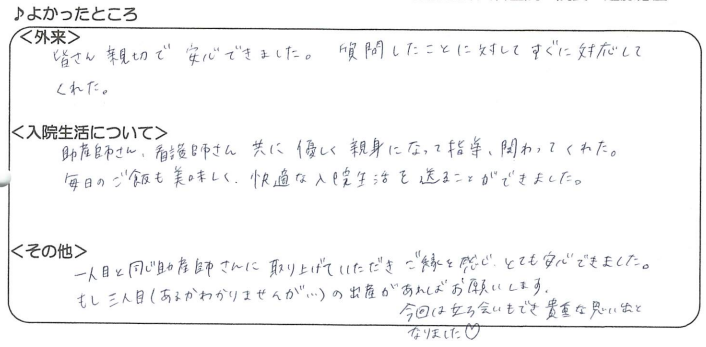 ♪よかったところ
＜外来＞
皆さん親切で安心できました。質問したことに対してすぐに対応して
くれた。
＜入院生活について＞
助産師さん、看護師さん共に優しく親身になって指導、関わってくれた。
毎日のご飯も美味しく、快適な入院生活を送ることができました。
＜その他＞
一人目と同じ助産師さんに取り上げていただきご縁を感じ、とても安心できました。
もし三人目(あるかわかりませんが…)の出産があればお願いします。
今回は立ち会いもでき貴重な思い出と
なりました♡